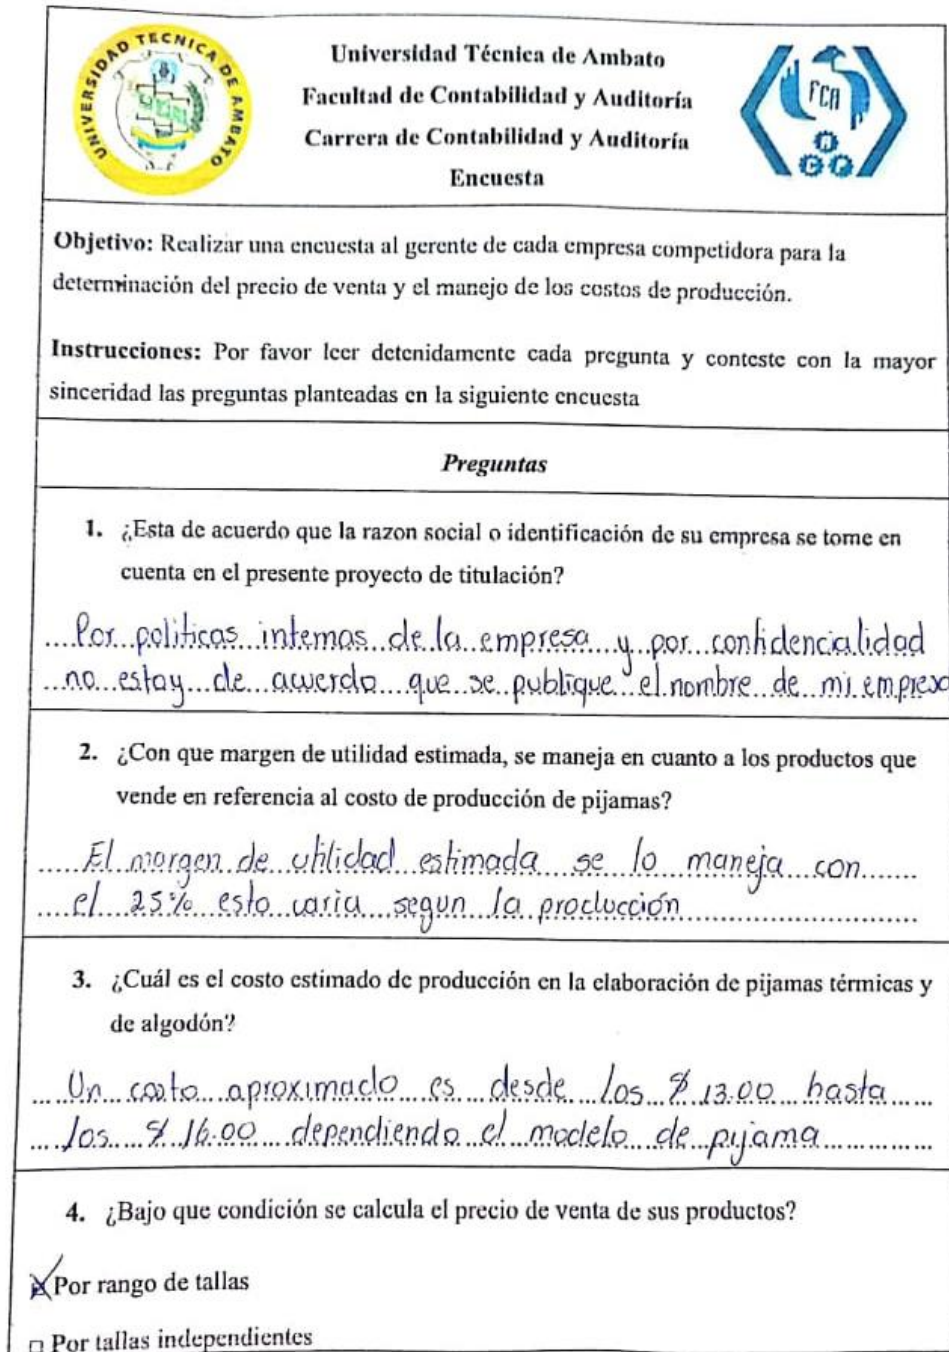 UNIVERSIDAD TECNICA DE AMBATO
Universidad Técnica de Ambato
Facultad de Contabilidad y Auditoría
Carrera de Contabilidad y Auditoría
Encuesta
FCA
Objetivo: Realizar una encuesta al gerente de cada empresa competidora para la
determinación del precio de venta y el manejo de los costos de producción.
Instrucciones: Por favor leer detenidamente cada pregunta y conteste con la mayor
sinceridad las preguntas planteadas en la siguiente encuesta
Preguntas
1. ¿Esta de acuerdo que la razon social o identificación de su empresa se tome en
cuenta en el presente proyecto de titulación?
Por politicas internas de la empresa y por confidencialidad
no estoy de acuerdo que se publique el nombre de mi empresa
2. ¿Con que margen de utilidad estimada, se maneja en cuanto a los productos que
vende en referencia al costo de producción de pijamas?
El margen de utilidad estimada se lo maneja con
el 25% esto varia segun la producción
3. ¿Cuál es el costo estimado de producción en la elaboración de pijamas térmicas y
de algodón?
Un costo aproximado es desde los $ 13.00 hasta
los $ 16.00 dependiendo el modelo de pijama
4. ¿Bajo que condición se calcula el precio de venta de sus productos?
Por rango de tallas
Por tallas independientes